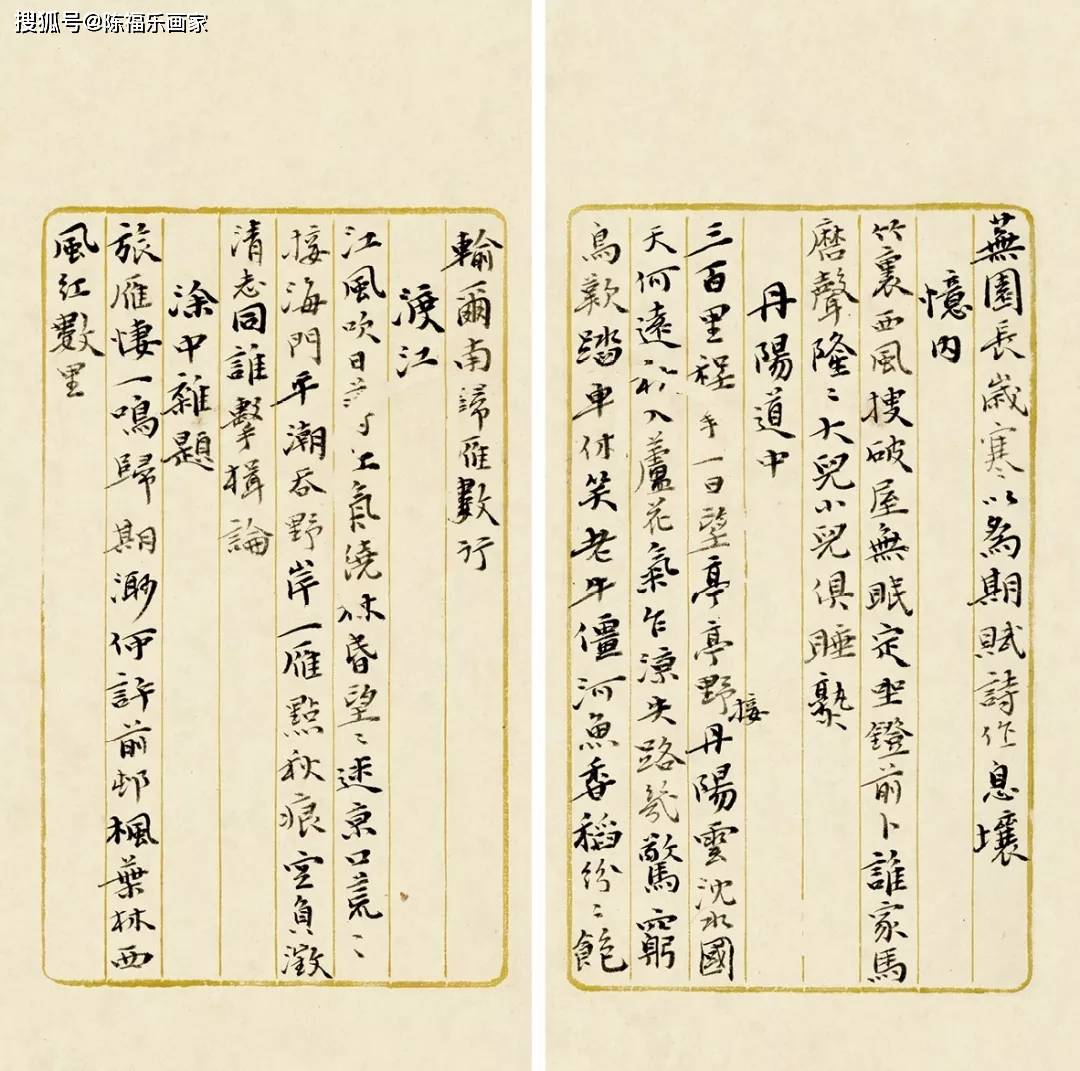 搜狐号@陈福乐画家
蕪園長歲寒以為期賦詩作息壤
憶内
竹裏西風搜破屋無眠定坐鐙前卜誰家馬
磨聲隆〻大兒小兒俱睡熟
丹陽道中
三百里程一日望亭亭野接丹陽雲沈水國
天何遠初入蘆花氣乍涼失路幾驚窮
鳥歎踏車休笑老牛僵河魚香稻紛〻飽
輸爾南歸雁數行
渡江
江風吹日江氣繞林昏望〻迷京口荒〻
接海門平潮吞野岸一雁點秋痕空負澂
清志同誰擊楫論
涂中雜題
旅雁悽一鳴歸期渺何許前邨楓葉林西
風紅數里